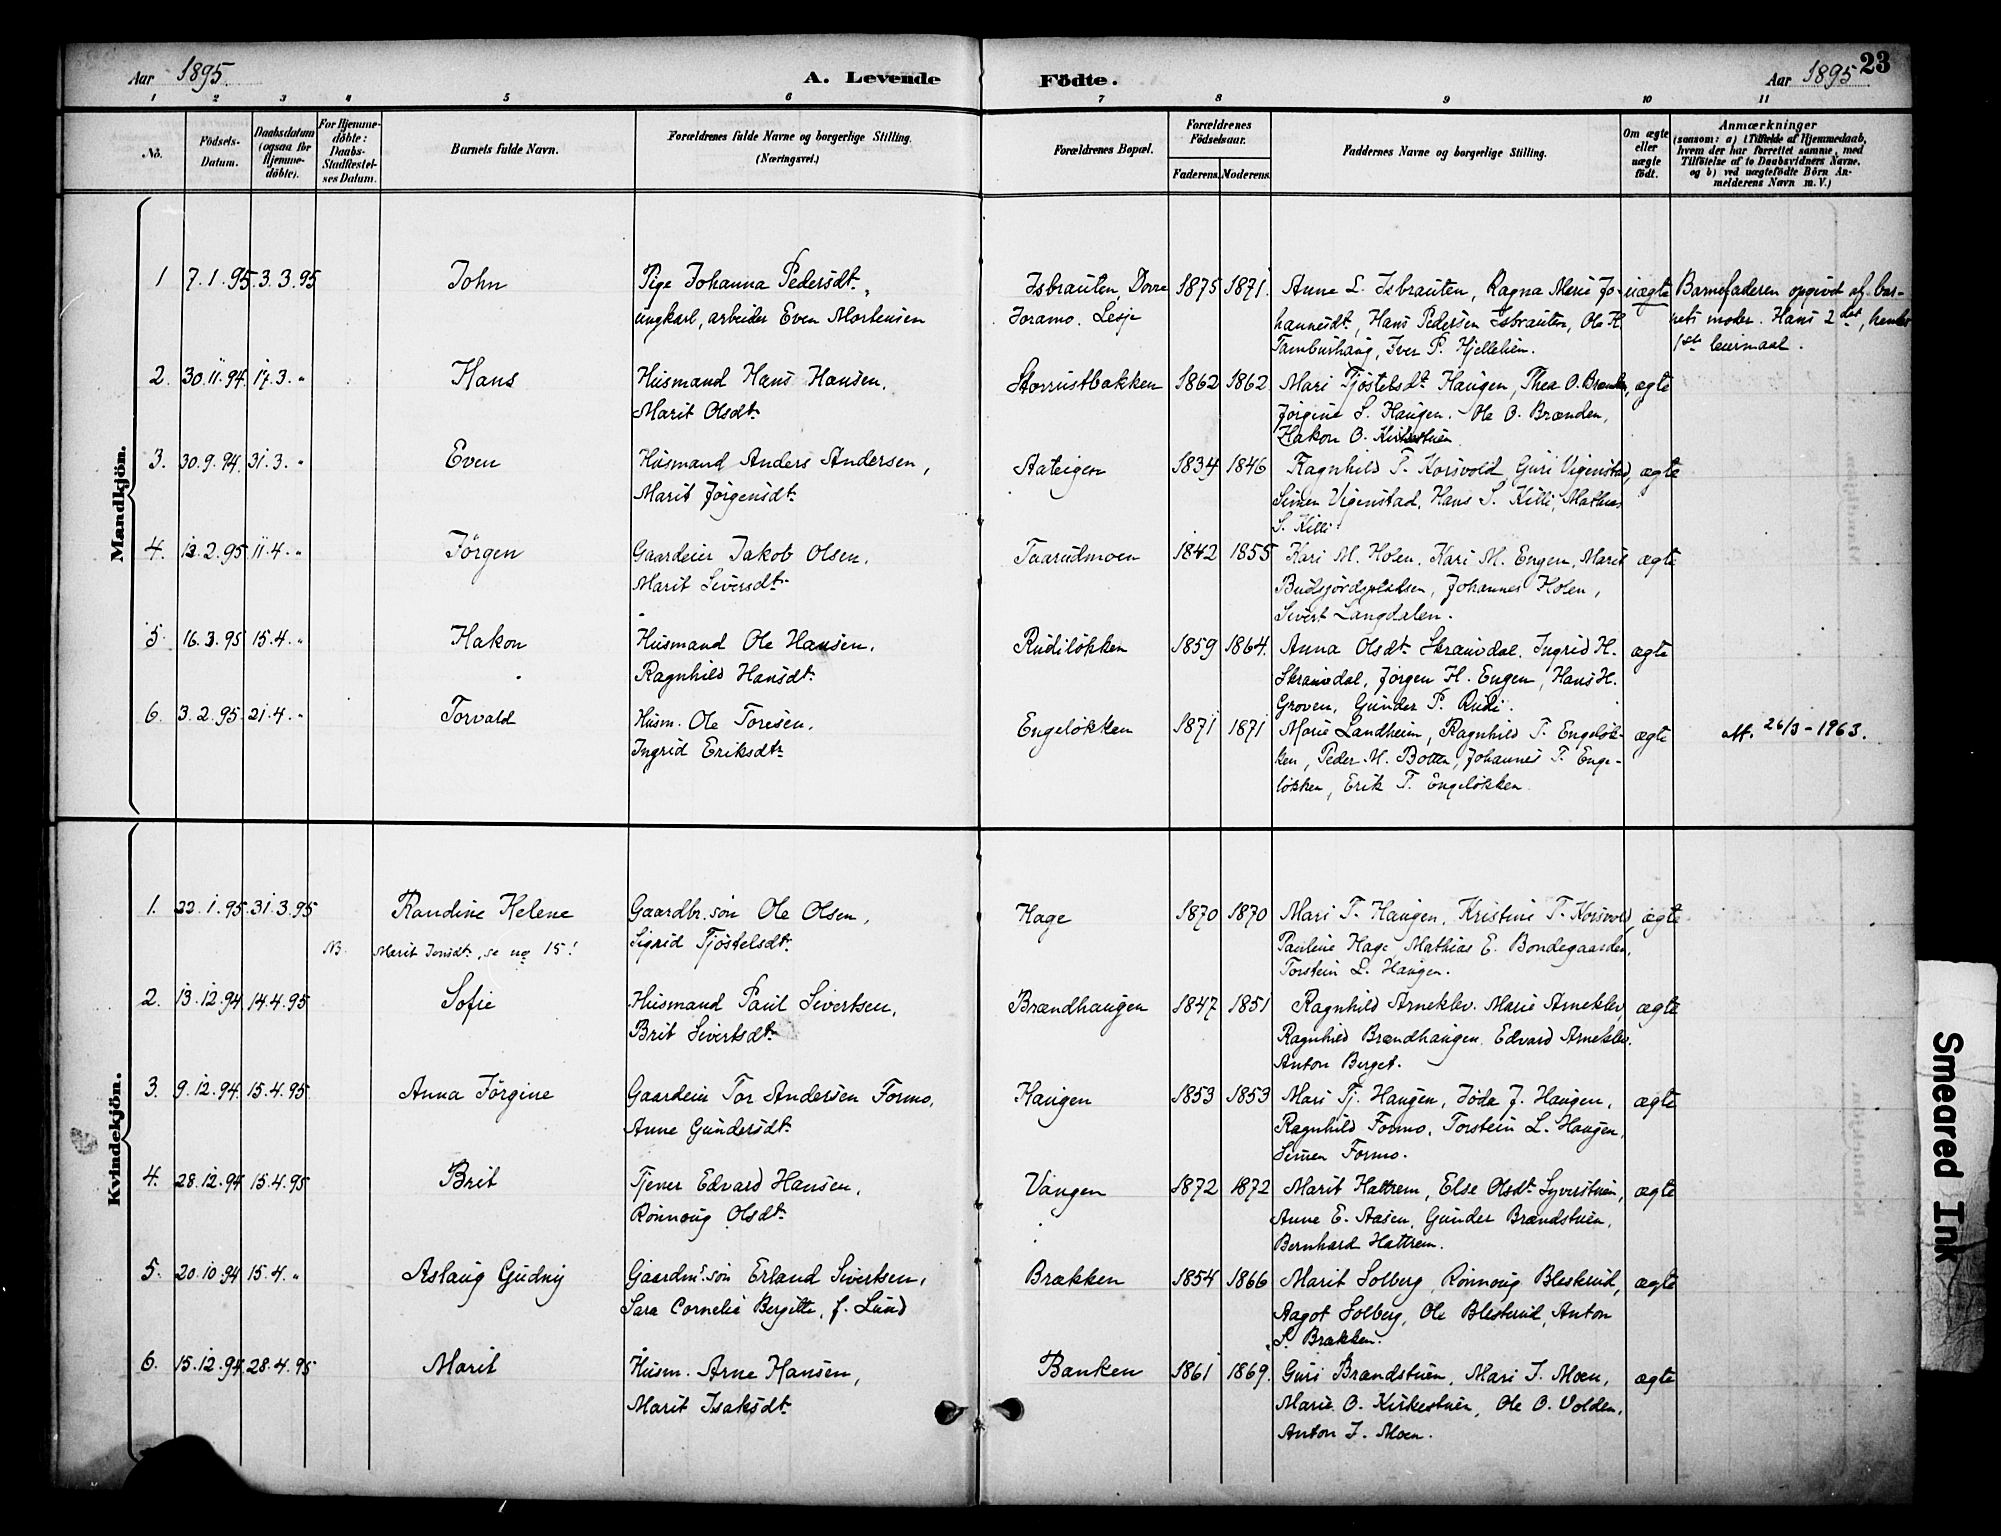 Aar 1895.
A. Levende Födte.
Aar 1895
23
1 2 3 4 5 6 7 8 9 10 11
No.
Födsels-
Datum.
Daabsdatum
(ogsaa for
Hjemme-
döbte).
For Hjemme-
döbte:
Daabs-
Stadfæstel-
ses Datum.
Barnets fulde Navn.
Forældrenes fulde Navne og borgerlige Stilling.
(Næringsvei.)
Forældrenes Bopæl.
Forældrenes
Födselsaar.
Faderens. Moderens.
Faddernes Navne og borgerlige Stilling.
Om ægte
eller
uægte
födt.
Anmærkninger
(saasom: a) i Tilfælde af Hjemmedaab,
hvem der har forrettet samme, med
Tilföielse af to Daabsvidners Navne,
og b) ved uægtefödte Börn An-
melderens Navn m. V.)
Mandkjön.
1 7.1.95 3.3.95 John Pige Johanna Pedersdt., Isbrauten, Dovre 1875 1871. Anne L. Isbrauten, Ragna Marie Jo- uægte Barnefaderen opgivet af bar-
ungkarl, arbeider Even Mortensen Joramo. Lesje hannesdt, Hans Pedersen Isbrauten, Ole H. nets moder. Hans 2det, hendes
Tamburhaug, Iver P. Hjellelien. 1ste leiermaal.
2. 30.11.94 17.3. " Hans Husmand Hans Hansen, Storrustbakken 1862 1862 Mari Tjöstelsdt. Haugen, Thea O. Brænden, ægte
Marit Olsdt. Jörgine S. Haugen. Ole O. Brænden,
Hakon O. Kirkestuen
3. 30.9.94. 31.3. " Even Husmand Anders Andersen, Aateigen 1834 1846 Ragnhild T. Korsvold, Guri Vigenstad, ægte
Marit Jörgensdt. Simen Vigenstad, Hans S. Killi, Mathias
S. Killi
4. 13.2.95 11.4. " Jörgen Gaardeier Jakob Olsen, Taarudmoen 1842 1855 Kari M. Holen, Kari M. Engen, Marit ægte
Marit Siversdt. Budsjordspladsen, Johannes Holen,
Sivert Langdalen.
5. 16.3.95 15.4. " Hakon Husmand Ole Hansen, Rudilökken 1859 1864. Anna Olsdt. Skramdal, Ingrid H. ægte
Ragnhild Hansdt. Skramdal, Jörgen H. Engen, Hans H.
Groven, Gunder P. Rudi.
6. 3.2.95 21.4. " Torvald Husm. Ole Toresen, Engelökken 1871 1871 Marie Landheim, Ragnhild T. Engelök- ægte 26/3-1963.
Ingrid Eriksdtr ken, Peder M. Botten, Johannes T. Enge-
lökken, Erik T. Engelökken
Kvindekjön.
1. 22.1.95 31.3.95 Randine Helene Gaardbr.sön Ole Olsen, Hage 1870 1870 Mari T. Haugen, Kristine T. Korsvold, ægte
NB. Marit Jonsdt, se no 15! Sigrid Tjöstelsdt. Pauline Hage, Mathias E. Bondegaarden,
Torstein L. Haugen.
2. 13.12.94 14.4.95 Sofie Husmand Paul Sivertsen, Brændhaugen 1847 1851 Ragnhild Arneklev. Marie Arneklev, ægte
Brit Sivertsdt. Ragnhild Brændhaugen. Edvard Arneklev.
Anton Berget.
3. 9.12.94 15.4.95 Anna Jörgine Gaardeier Tor Andersen Formo, Haugen 1853 1853 Mari Tj. Haugen, Jöda J. Haugen, ægte
Anne Gundersdt. Ragnhild Formo, Torstein L. Haugen,
Simen Formo.
4. 28.12.94 15.4.95 Brit Tjener Edvard Hansen, Vangen 1872 1872 Marit Hattrem, Else Olsdt. Syverstuen, ægte
Rönnoug Olsdt. Anne E. Aasen, Gunder Brændstuen,
Bernhard Hattrem.
5. 20.10.94 15.4. " Aslaug Gudny Gaardm.sön Erland Sivertsen, Brækken 1854 1866 Marit Solberg, Rönnoug Blesterud, ægte
Sara Cornelie Bergitte, f. Lund Aagot Solberg, Ole Blesterud, Anton
S. Brækken.
6. 15.12.94 28.4.95 Marit Husm. Arne Hansen, Banken 1861 1869. Guri Brandstuen, Mari J. Moen, ægte
Marit Isaksdt. Marie O. Kirkestuen, Ole O. Volden,
Anton J. Moen.
Smeared Ink